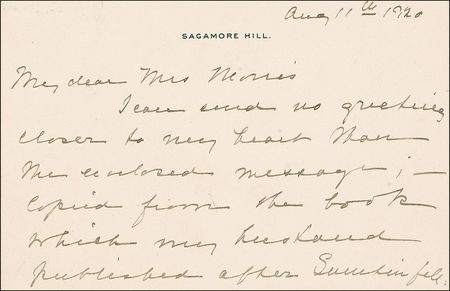 Aug 11th 1920
SAGAMORE HILL.
My dear Mrs Morris
I can send no greeting
closer to my heart than
the enclosed message; —
copied from the book
which my husband
published after Quentin fell: